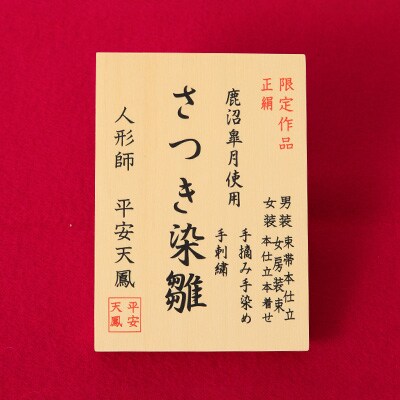 限定作品
正絹
男装 束帯本仕立
女装 女房装束
本仕立本着せ
鹿沼皐月使用
手摘み手染め
手刺繍
さつき染雛
人形師 平安天鳳
平安
天鳳